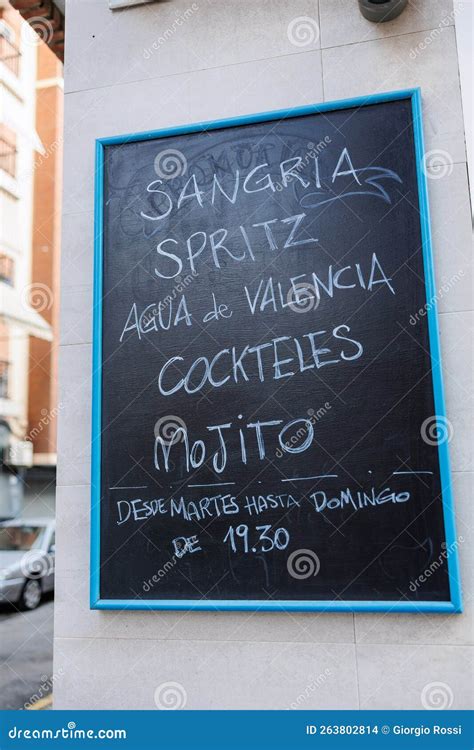 SANGRIA
SPRITZ
AGUA de VALENCIA
COCKTELES
MOJITO
DESDE MARTES HASTA DOMINGO
DE 19.30
dreamstime.com
ID 263802814 © Giorgio Rossi